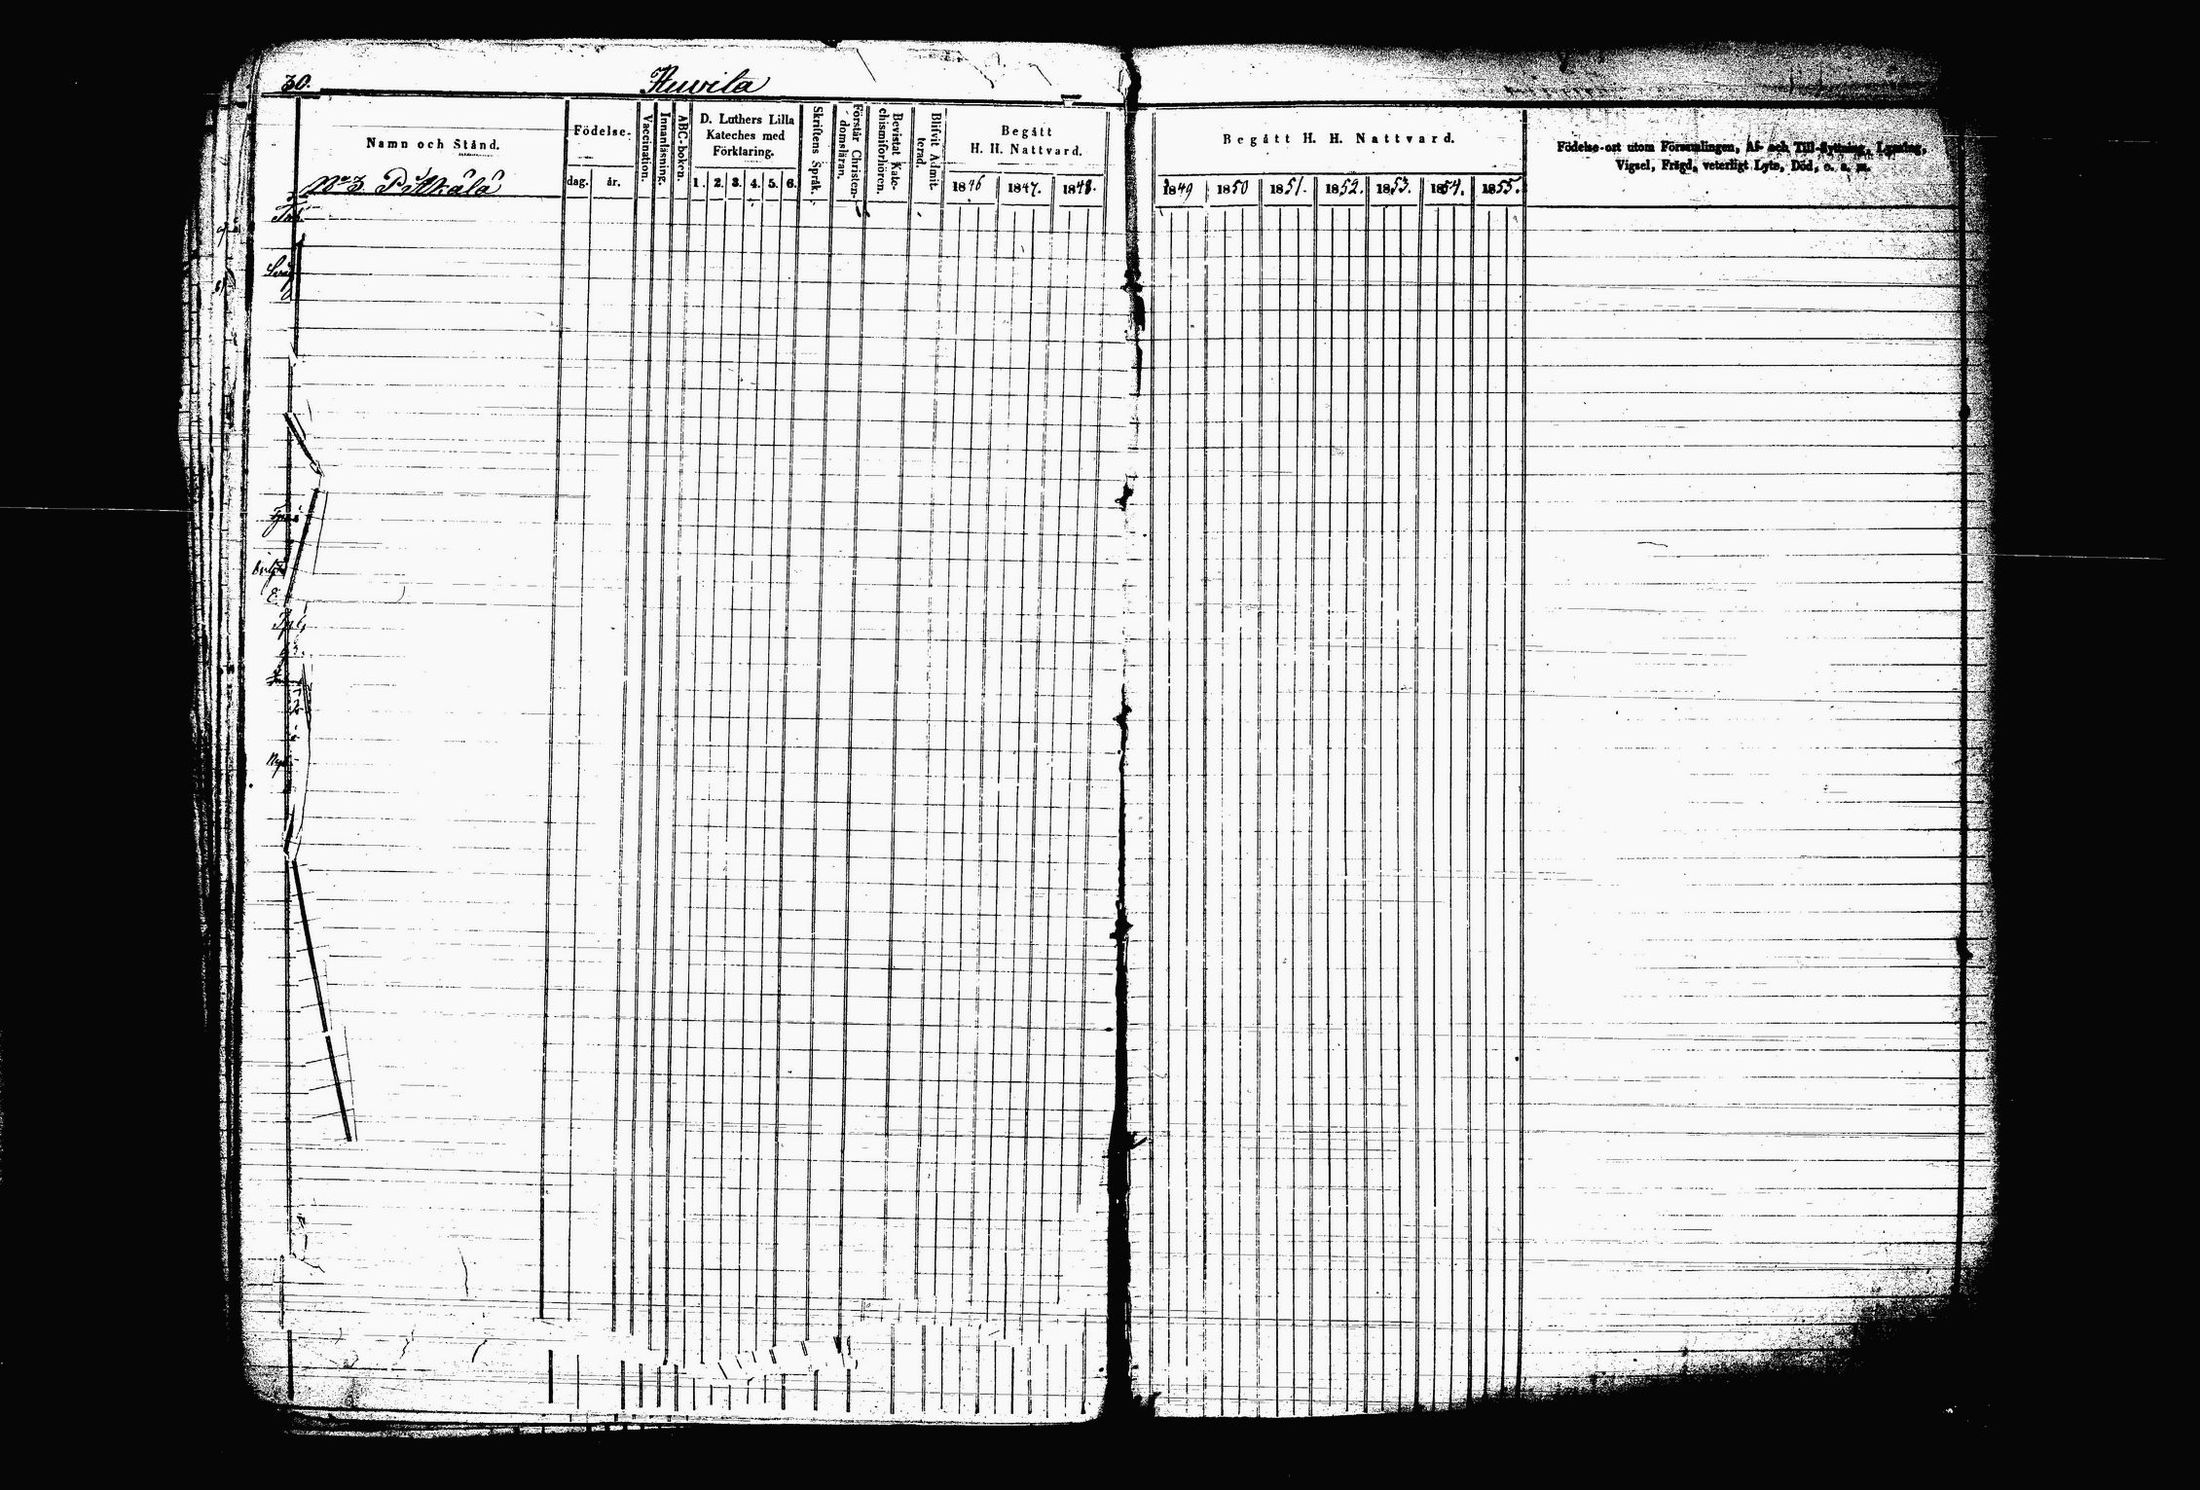 30.
Huvila
Namn och Stånd.
Födelse.
dag. år.
Vaccination.
Innanläsning.
ABC-boken.
D. Luthers Lilla
Kateches med
Förklaring.
1. 2. 3. 4. 5. 6.
Skriftens Språk.
Förstår Christen-
domsläran.
Bevistat Kate-
chismiförhören.
Blifvit Admit-
terad.
Begått
H. H. Nattvard.
1846 1847. 1848.
Begått H. H. Nattvard.
1849 1850 1851. 1852. 1853. 1854. 1855.
Födelse-ort utom Församlingen, Af- och Till-flyttning, Lysning,
Vigsel, Frägd, veterligt Lyte, Död, o. s. m.
No 3 Pitkälä